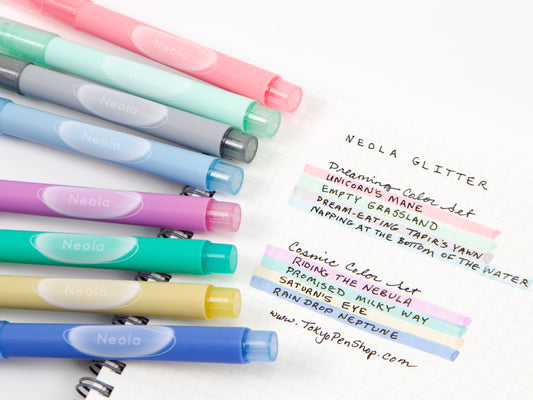 Neola
Neola
Neola
Neola
Neola
Neola
Neola
Neola
NEOLA GLITTER
Dreaming Color Set
UNICORN'S MANE
EMPTY GRASSLAND
DREAM-EATING TAPIR'S YAWN
NAPPING AT THE BOTTOM OF THE WATER
Cosmic Color Set
RIDING THE NEBULA
PROMISED MILKY WAY
SATURN'S EYE
RAIN DROP NEPTUNE
www.TokyoPenShop.com